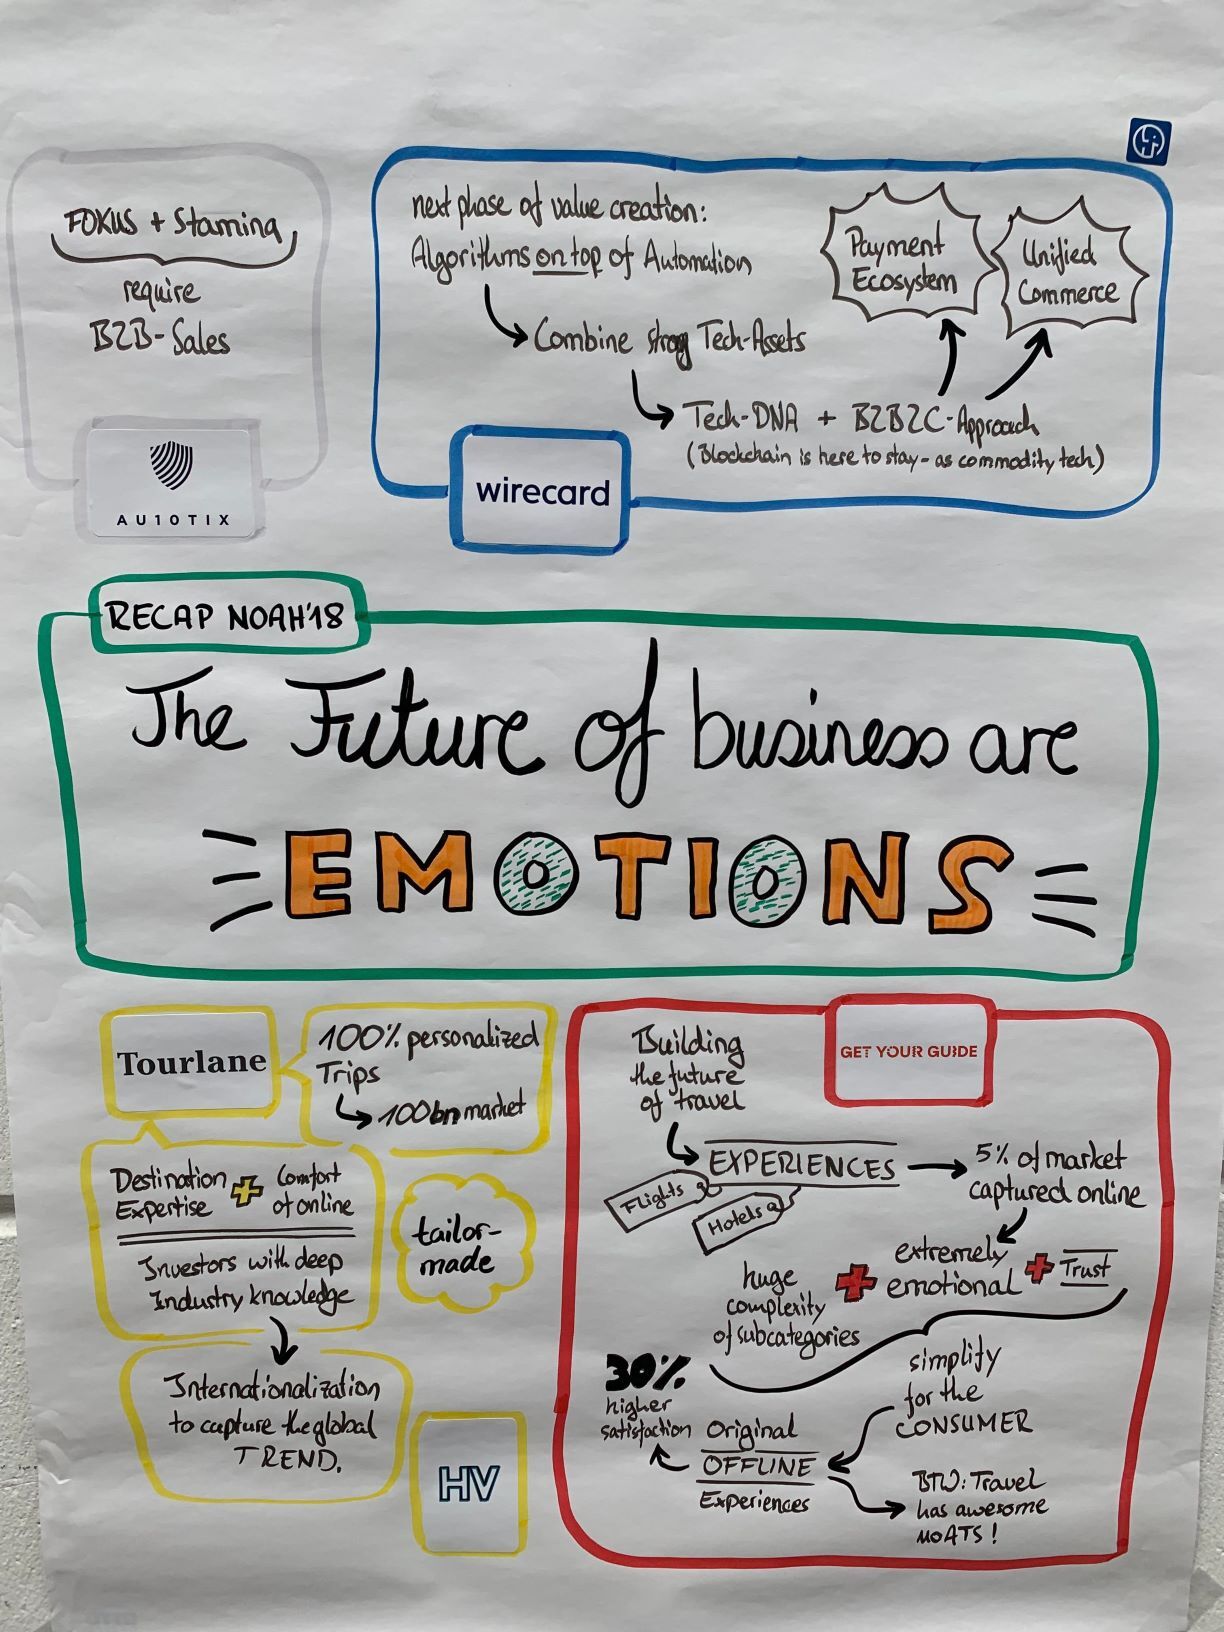 FOKUS + Stamina
require
B2B-Sales
AU10TIX
next phase of value creation:
Algorithms on top of Automation
Combine strong Tech-Assets
Tech-DNA + B2B2C-Approach
(Blockchain is here to stay - as commodity tech)
Payment
Ecosystem
Unified
Commerce
wirecard
RECAP NOAH'18
The Future of business are
EMOTIONS
Tourlane
100% personalized
Trips
100bn market
Destination + Comfort
Expertise of online
Investors with deep
Industry knowledge
tailor-
made
Internationalization
to capture the global
TREND.
HV
GET YOUR GUIDE
Building
the future
of travel
EXPERIENCES
Flights
Hotels
5% of market
captured online
extremely
emotional + Trust
huge +
complexity
of subcategories
simplify
for the
CONSUMER
30%
higher
satisfaction
Original
OFFLINE
Experiences
BTW: Travel
has awesome
MOATS!